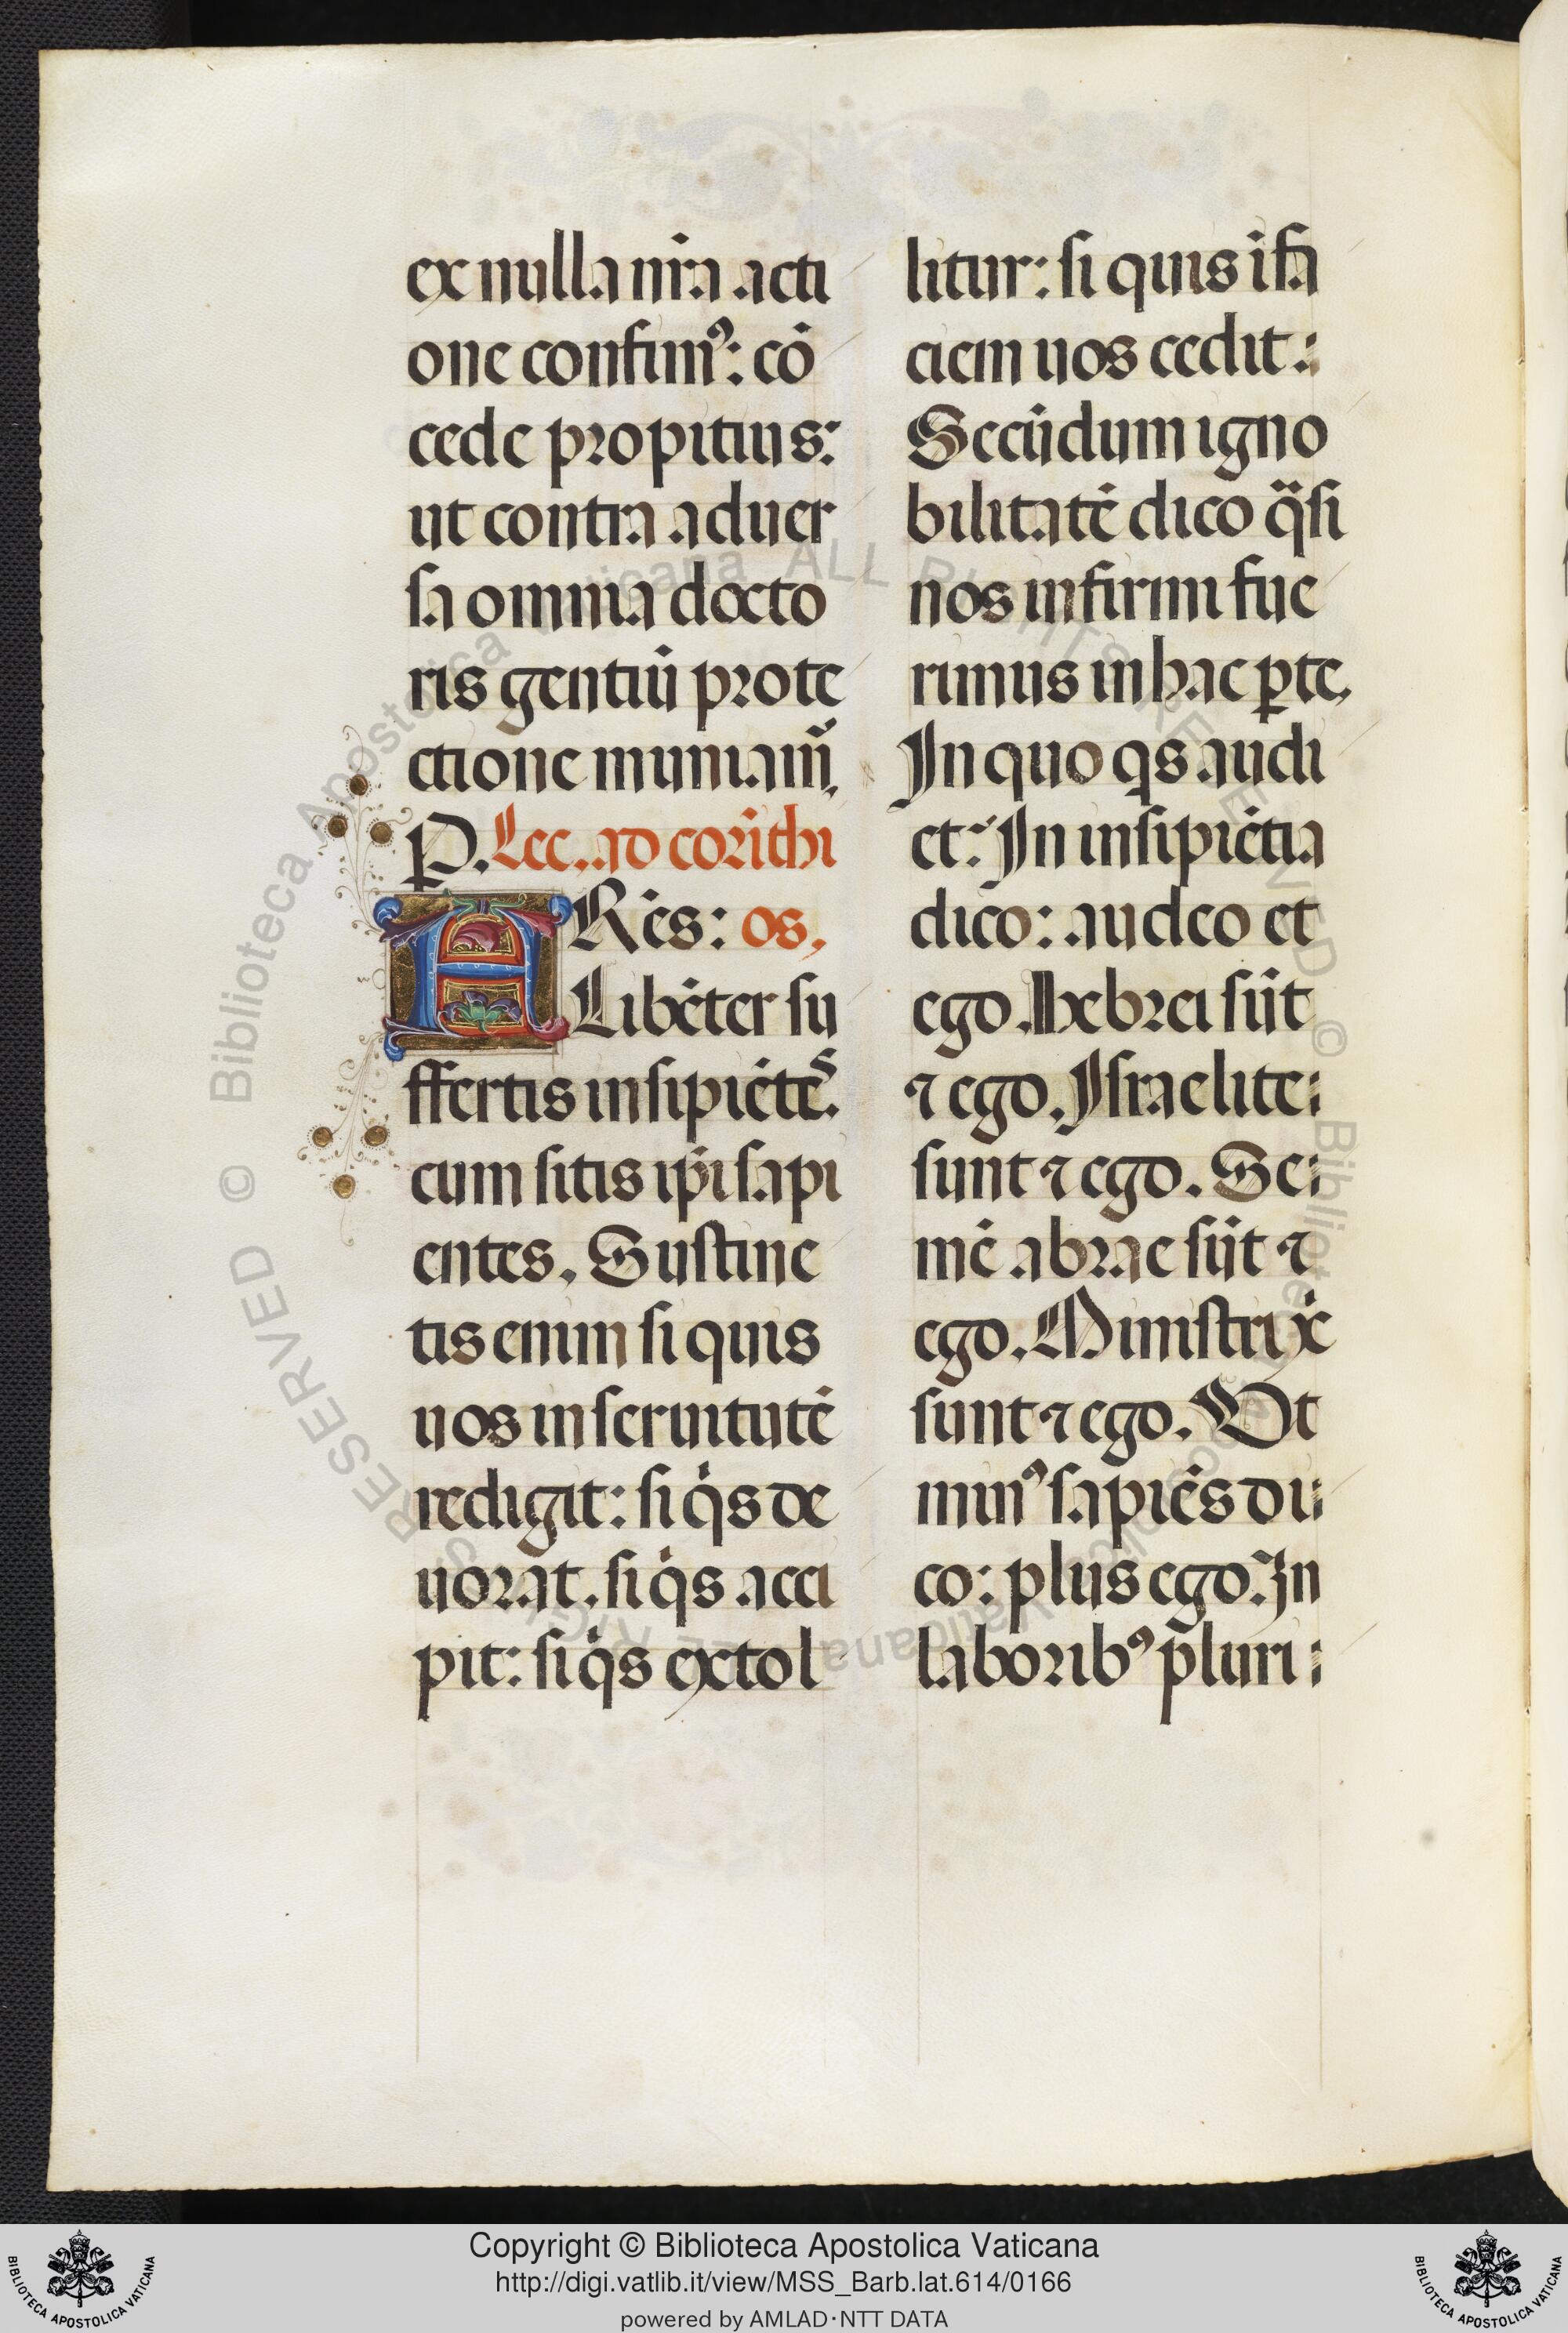 ex nulla nr̄a acti
one confim⁹: cō
cede propitius:
ut contra aduer
sa omnia docto
ris gentiū prote
ctione muniam̃,
P. Lec. ad corīthi
FRēs: os,
Libēter su
ffertis insipiētes.
cum sitis ip̄i sapi
entes. Sustine
tis enim si quis
uos in seruitutē
redigit: si q̇s de
uorat. si q̇s acci
pit: si q̇s extol
litur: si quis ī fa
ciem uos cedit:
Secūdum igno
bilitatē dico q̈si
nos infirmi fue
rimus in hac ꝑte,
In quo qs audi
et: In insipiētia
dico: audeo et
ego. Hebrei sūt
⁊ ego. Israelite:
sunt ⁊ ego. Se:
mē abrae sūt ⁊
ego. Ministri xē
sunt ⁊ ego. Vt
min⁹ sapiēs di:
co: plus ego. In
laborib⁹ pluri:
© Biblioteca Apostolica Vaticana ALL RIGHTS RESERVED
Copyright © Biblioteca Apostolica Vaticana
http://digi.vatlib.it/view/MSS_Barb.lat.614/0166
powered by AMLAD·NTT DATA
BIBLIOTECA APOSTOLICA VATICANA
BIBLIOTECA APOSTOLICA VATICANA